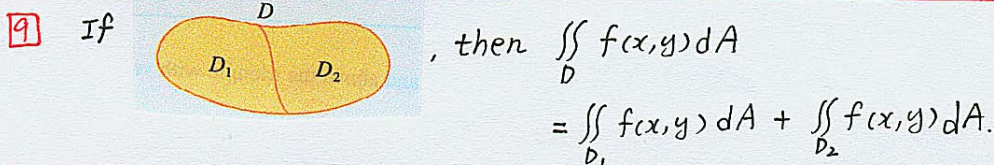 9 If D D₁ D₂ , then ∬_D f(x,y) dA
= ∬_D₁ f(x,y) dA + ∬_D₂ f(x,y) dA.